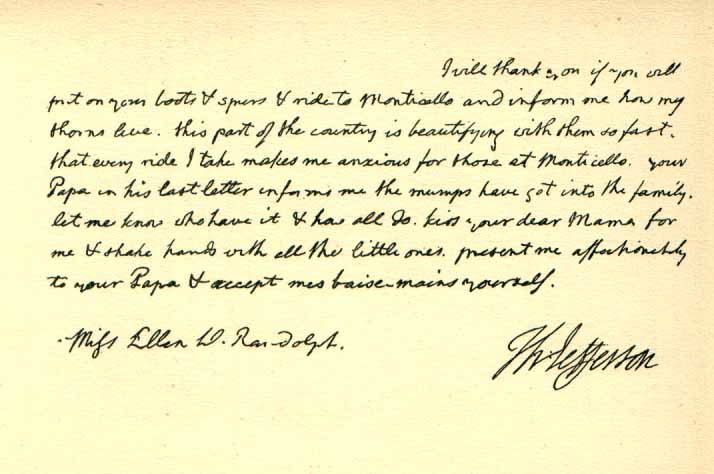 I will thank you if you will
put on your boots & spurs & ride to Monticello and inform me how my
thorns live. this part of the country is beautifying with them so fast.
that every ride I take makes me anxious for those at Monticello. your
Papa in his last letter informs me the mumps have got into the family.
let me know who have it & how all do. kiss your dear Mama for
me & shake hands with all the little ones. present me affectionately
to your Papa & accept mes baise-mains yourself.
Miss Ellen W. Randolph.
Th: Jefferson